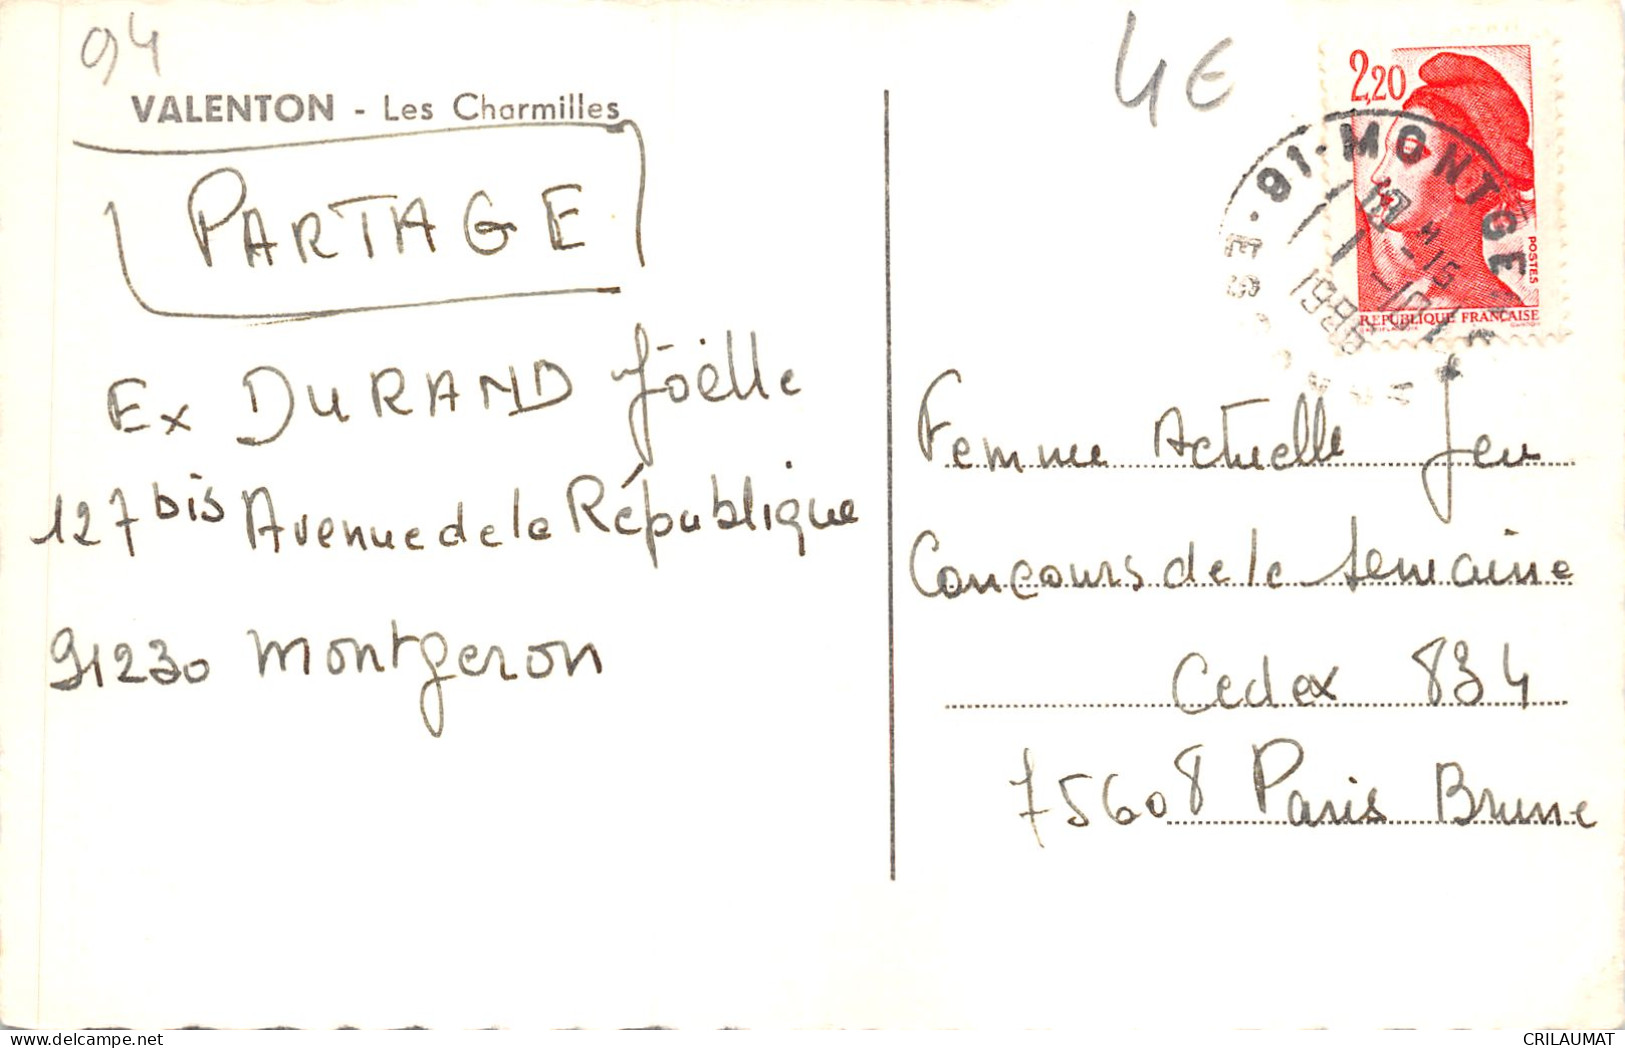 94
VALENTON - Les Charmilles
PARTAGE
Ex DURAND Joëlle
127 bis Avenue de la République
91230 Montgeron
4E
2,20
POSTES
REPUBLIQUE FRANÇAISE
91-MONTGERON
15
1988
Femme Actuelle Jeu
Concours de la semaine
Cedex 834
75608 Paris Brune
CRILAUMAT